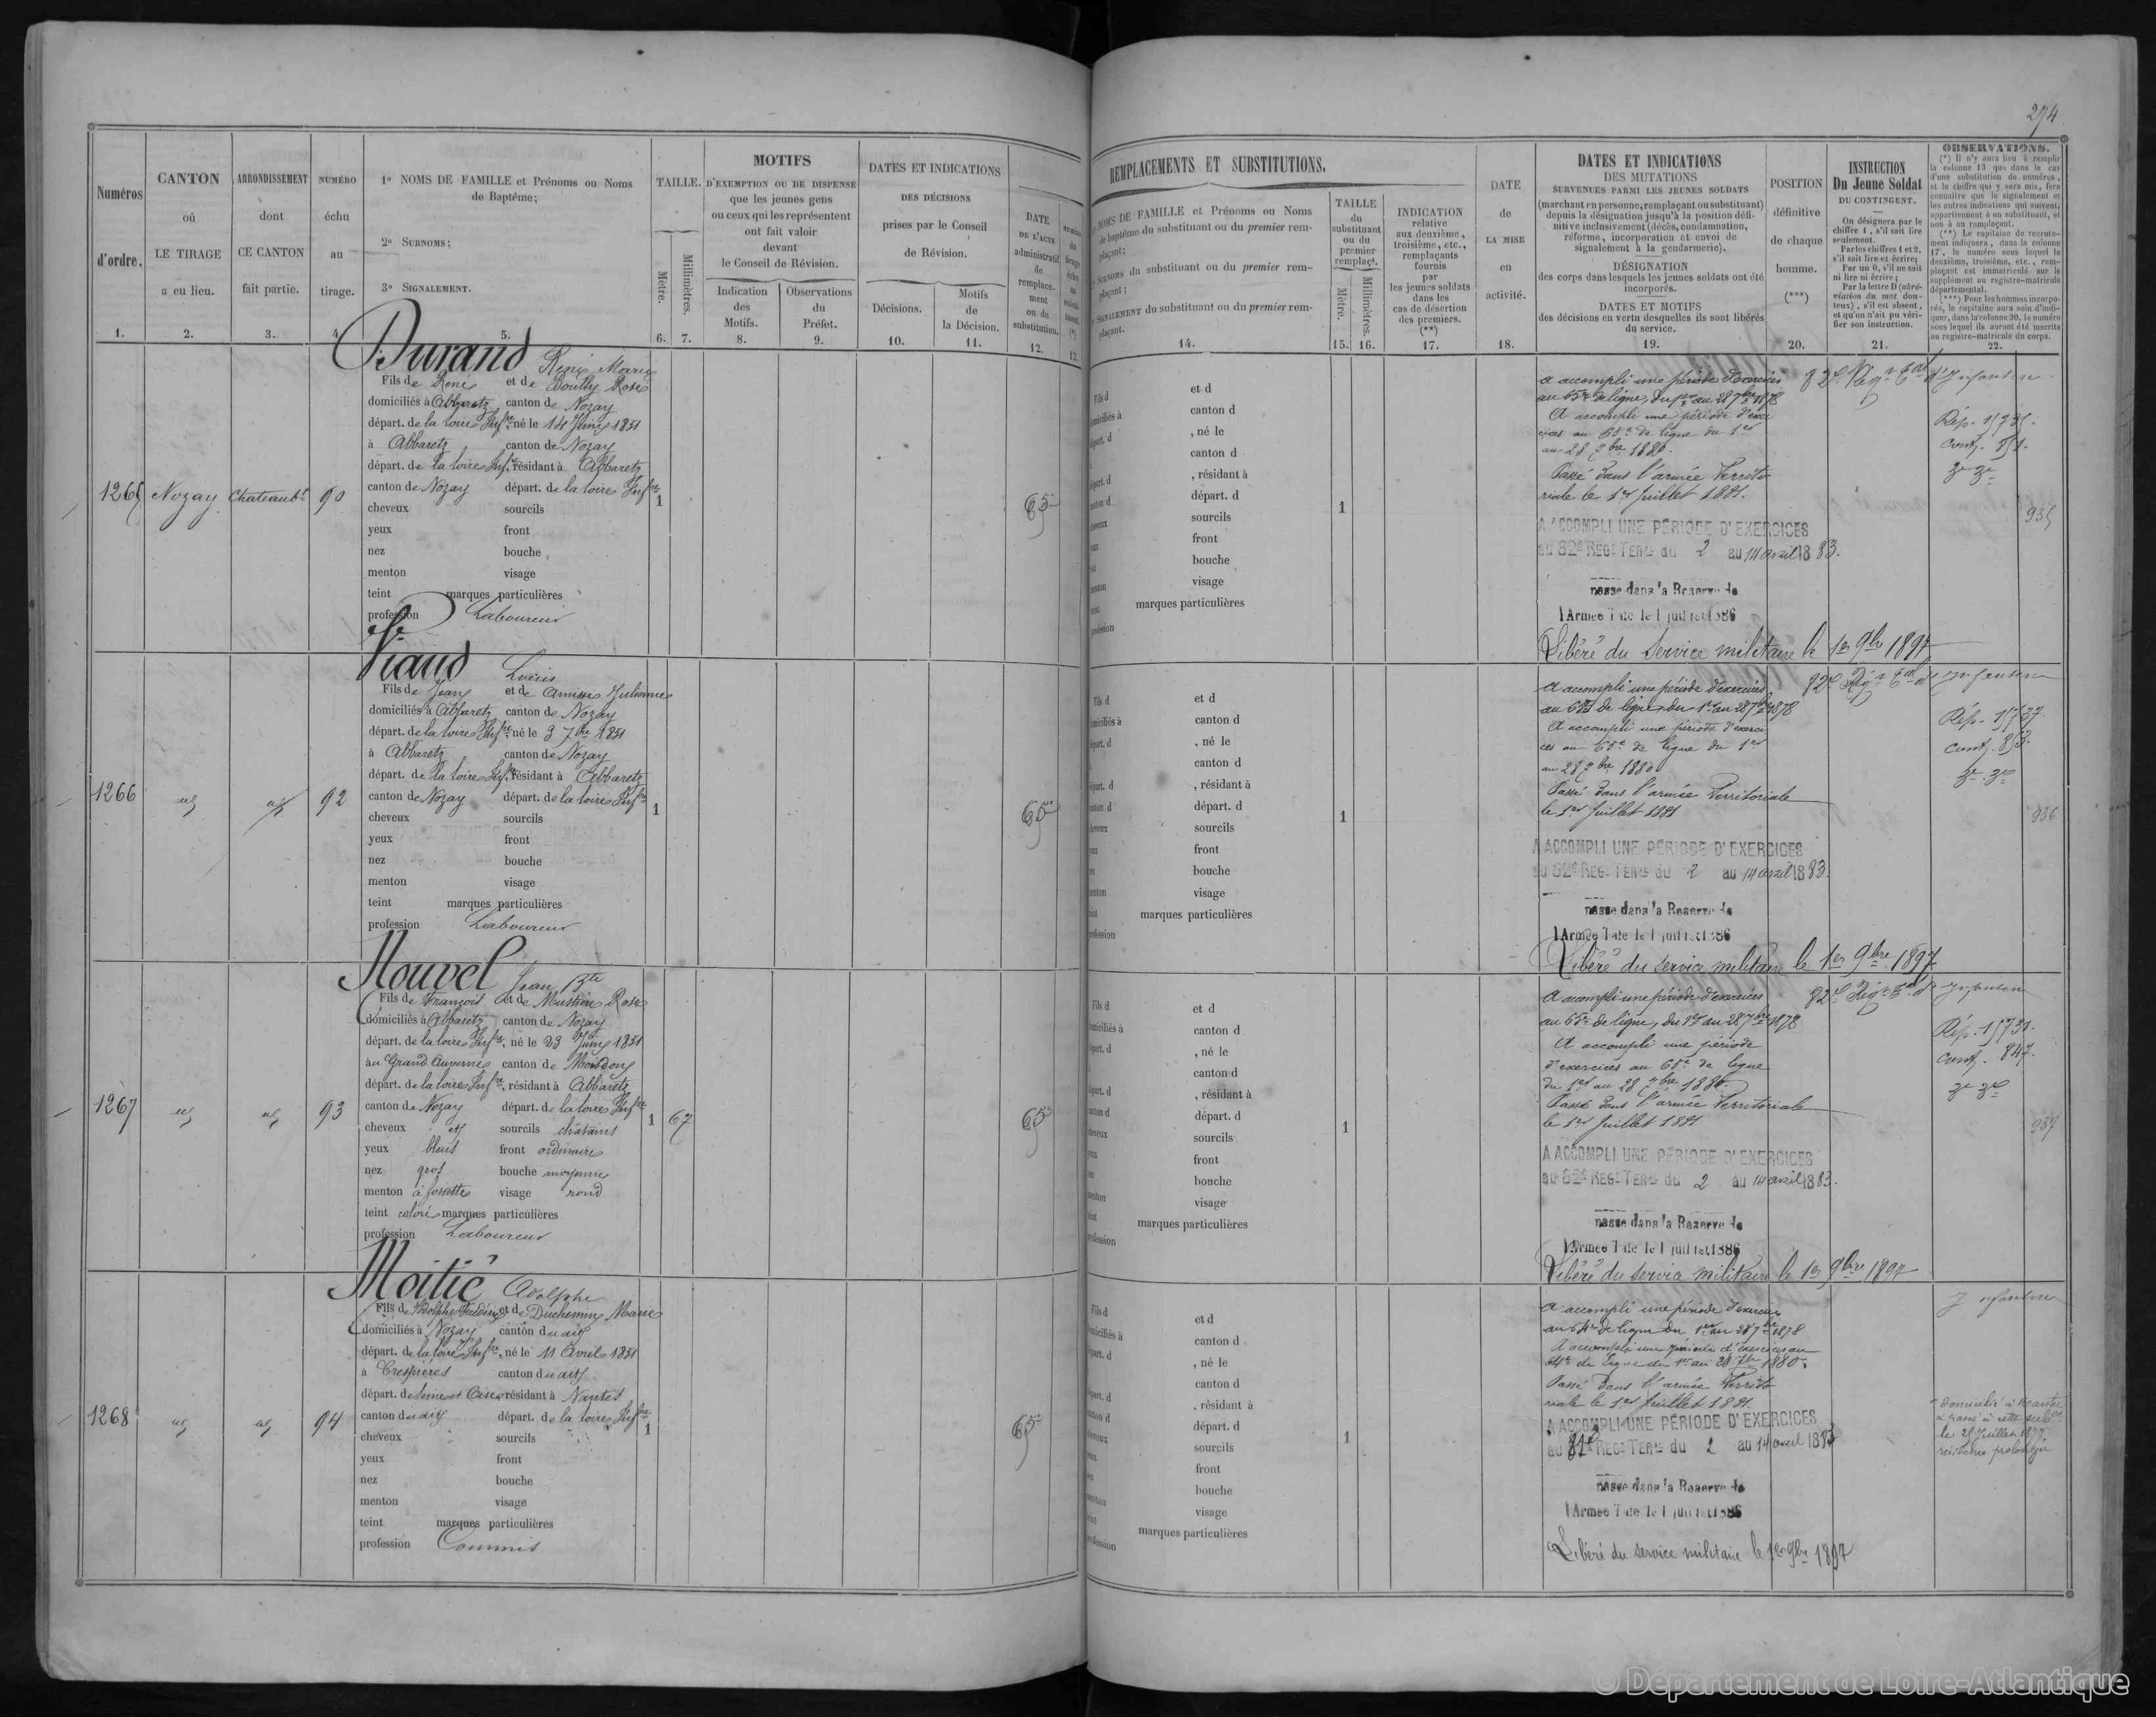 294
Numéros
d'ordre.
1.
CANTON
où
LE TIRAGE
a eu lieu.
2.
ARRONDISSEMENT
dont
CE CANTON
fait partie.
3.
NUMÉRO
échu
au
tirage.
4.
1º NOMS DE FAMILLE et Prénoms ou Noms
de Baptême;
2º SURNOMS;
3º SIGNALEMENT.
5.
TAILLE.
Mètre.
Millimètres.
6. 7.
MOTIFS
D'EXEMPTION OU DE DISPENSE
que les jeunes gens
ou ceux qui les représentent
ont fait valoir
devant
le Conseil de Révision.
Indication
des
Motifs.
8.
Observations
du
Préfet.
9.
DATES ET INDICATIONS
DES DÉCISIONS
prises par le Conseil
de Révision.
Décisions.
10.
Motifs
de
la Décision.
11.
DATE
DE L'ACTE
administratif
de
remplace-
ment
ou de
substitution.
12.
13.
REMPLACEMENTS ET SUBSTITUTIONS.
NOMS DE FAMILLE et Prénoms ou Noms
de baptême du substituant ou du premier rem-
plaçant;
SURNOMS du substituant ou du premier rem-
plaçant;
SIGNALEMENT du substituant ou du premier rem-
plaçant.
14.
TAILLE
du
substituant
ou du
premier
remplaçt.
Mètre.
Millimètres.
15. 16.
INDICATION
relative
aux deuxième,
troisième, etc.,
remplaçants
fournis
par
les jeunes soldats
dans les
cas de désertion
des premiers.
(**)
17.
DATE
de
LA MISE
en
activité.
18.
DATES ET INDICATIONS
DES MUTATIONS
SURVENUES PARMI LES JEUNES SOLDATS
(marchant en personne, remplaçant ou substituant)
depuis la désignation jusqu'à la position défi-
nitive inclusivement (décès, condamnation,
réforme, incorporation et envoi de
signalement à la gendarmerie).
DÉSIGNATION
des corps dans lesquels les jeunes soldats ont été
incorporés.
DATES ET MOTIFS
des décisions en vertu desquelles ils sont libérés
du service.
19.
POSITION
définitive
de chaque
homme.
(***)
20.
INSTRUCTION
Du Jeune Soldat
DU CONTINGENT.
On désignera par le
chiffre 1, s'il sait lire
seulement.
Par les chiffres 1 et 2,
s'il sait lire et écrire;
Par un 0, s'il ne sait
ni lire ni écrire;
Par la lettre D (abré-
viation du mot dou-
teux), s'il est absent,
et qu'on n'ait pu véri-
fier son instruction.
21.
OBSERVATIONS.
(*) Il n'y aura lieu à remplir
la colonne 13 que dans le cas
d'une substitution de numéros,
et le chiffre qui y sera mis, fera
connaître que le signalement et
les autres indications qui suivent,
appartiennent à un substituant, et
non à un remplaçant.
(**) Le capitaine de recrute-
ment indiquera, dans la colonne
17, le numéro sous lequel le
deuxième, troisième, etc., rem-
plaçant est immatriculé sur le
supplément au registre-matricule
départemental.
(***) Pour les hommes incorpo-
rés, le capitaine aura soin d'indi-
quer, dans la colonne 20, le numéro
sous lequel ils auront été inscrits
au registre-matricule du corps.
22.
1265 Nozay Chateaubt 90
Durand René Marie
Fils de René et de Rose
domiciliés à Abbaretz canton de Nozay
départ. de la loire Infre, né le 14 Juin 1851
à Abbaretz canton de Nozay
départ. de la loire Infre, résidant à Abbaretz
canton de Nozay départ. de la loire Infre
cheveux sourcils
yeux front
nez bouche
menton visage
teint marques particulières
profession Laboureur
1
65
et d
canton d
, né le
canton d
, résidant à
départ. d
sourcils
front
bouche
visage
marques particulières
1
a accompli une période d'exercices
au 65e de ligne, du 1er au 28 7bre 1878
A accompli une période d'exer
cices au 65e de ligne du 1er
au 28 7bre 1880.
Passé dans l'armée Territo
riale le 1er Juillet 1881.
A ACCOMPLI UNE PÉRIODE D'EXERCICES
au 82e REGt TERal du 2 au 14 avril 1883.
passé dans la Reserve de
l'Armée Tale le 1 juillet 1886
Libéré du Service militaire le 1er 9bre 1897
82e Régt Tal d'Infanterie
Rép. 1735.
cont. 851.
935
1266 id id 92
Viaud Louis
Fils de Jean et de Julienne
domiciliés à Abbaretz canton de Nozay
départ. de la loire Infre, né le 3 7bre 1851
à Abbaretz canton de Nozay
départ. de la loire Infre, résidant à Abbaretz
canton de Nozay départ. de la loire Infre
cheveux sourcils
yeux front
nez bouche
menton visage
teint marques particulières
profession Laboureur
1
65
et d
canton d
, né le
canton d
, résidant à
départ. d
sourcils
front
bouche
visage
marques particulières
1
a accompli une période d'exercices
au 65e de ligne du 1er au 28 7bre 1878
A accompli une période d'exerci
ces au 65e de ligne du 1er
au 28 7bre 1880
Passé dans l'armée Territoriale
le 1er Juillet 1881
A ACCOMPLI UNE PÉRIODE D'EXERCICES
au 82e REGt TERal du 2 au 14 avril 1883.
passé dans la Reserve de
l'Armée Tale le 1 juillet 1886
Libéré du service militaire le 1er 9bre 1897
82e Régt Tal d'Infanterie
Rép. 1727.
cont. 853.
936
1267 id id 93
Nouvel Jean Bte
Fils de François et de Rose
domiciliés à Abbaretz canton de Nozay
départ. de la loire Infre, né le 23 Juin 1851
au Grand Auverné canton de Moisdon
départ. de la loire Infre, résidant à Abbaretz
canton de Nozay départ. de la loire Infre
cheveux et sourcils châtains
yeux bleus front ordinaire
nez gros bouche moyenne
menton à fossette visage rond
teint coloré marques particulières
profession Laboureur
1 67
65
et d
canton d
, né le
canton d
, résidant à
départ. d
sourcils
front
bouche
visage
marques particulières
1
A accompli une période d'exercices
au 65e de ligne, du 1er au 28 7bre 1878
A accompli une période
d'exercices au 65e de ligne
du 1er au 28 7bre 1880.
Passé dans l'armée Territoriale
le 1er Juillet 1881
A ACCOMPLI UNE PÉRIODE D'EXERCICES
au 82e REGt TERal du 2 au 14 avril 1883.
passé dans la Reserve de
l'Armée Tale le 1 juillet 1886
Libéré du service militaire le 1er 9bre 1897
82e Régt Tal d'Infanterie
Rép. 1731.
cont. 847.
937
1268 id id 94
Moitié Adolphe
Fils de Adolphe Frédéric et de Duchemin Marie
domiciliés à Nozay canton dudit
départ. de la loire Infre, né le 11 Avril 1851
à Crespières canton dudit
départ. de Seine et Oise résidant à Nantes
canton dudit départ. de la loire Infre
cheveux sourcils
yeux front
nez bouche
menton visage
teint marques particulières
profession Commis
1
65
et d
canton d
, né le
canton d
, résidant à
départ. d
sourcils
front
bouche
visage
marques particulières
1
a accompli une période d'exercices
au 64e de ligne du 1er au 28 7bre 1878
A accompli une période d'exercices au
64e de ligne du 1er au 28 7bre 1880.
Passé dans l'armée Territo
riale le 1er Juillet 1881
A ACCOMPLI UNE PÉRIODE D'EXERCICES
au 81e REGt TERal du 2 au 14 avril 1883
passé dans la Reserve de
l'Armée Tale le 1 juillet 1886
Libéré du service militaire le 1er 9bre 1897
Infanterie
domicilié à Nantes
passé à cette subon
le 28 Juillet
résidence prolongée
© Département de Loire-Atlantique